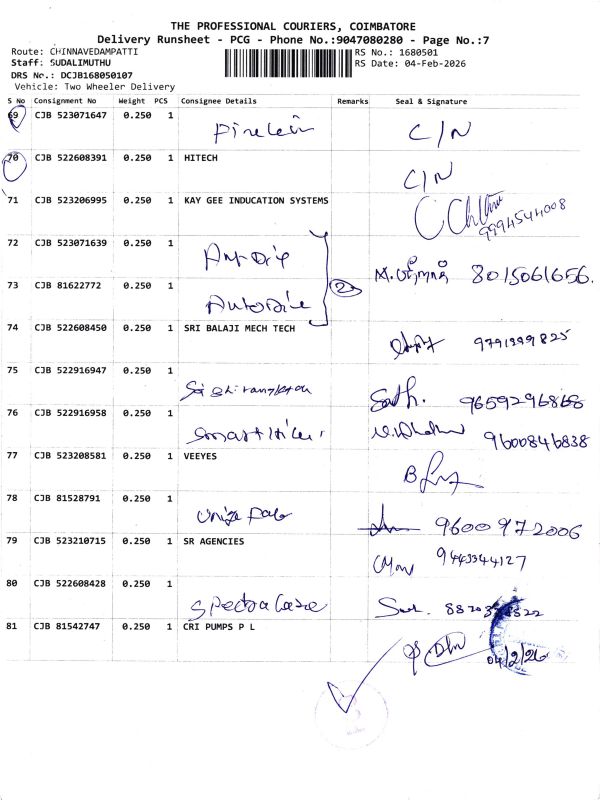 THE PROFESSIONAL COURIERS, COIMBATORE
Delivery Runsheet - PCG - Phone No.:9047080280 - Page No.:7
Route: CHINNAVEDAMPATTI RS No.: 1680501
Staff: SUDALIMUTHU RS Date: 04-Feb-2026
DRS Nr.: DCJB168050107
Vehicle: Two Wheeler Delivery
S No Consignment No Weight PCS Consignee Details Remarks Seal & Signature
69 CJB 523071647 0.250 1 C/N
70 CJB 522608391 0.250 1 HITECH C/N
71 CJB 523206995 0.250 1 KAY GEE INDUCATION SYSTEMS 9994544008
72 CJB 523071639 0.250 1
73 CJB 81622772 0.250 1 2 8015061656.
74 CJB 522608450 0.250 1 SRI BALAJI MECH TECH 9791399825
75 CJB 522916947 0.250 1 Sath. 9659296868
76 CJB 522916958 0.250 1 9600846838
77 CJB 523208581 0.250 1 VEEYES
78 CJB 81528791 0.250 1 9600972006
79 CJB 523210715 0.250 1 SR AGENCIES 9443344127
80 CJB 522608428 0.250 1
81 CJB 81542747 0.250 1 CRI PUMPS P L 04/2/26